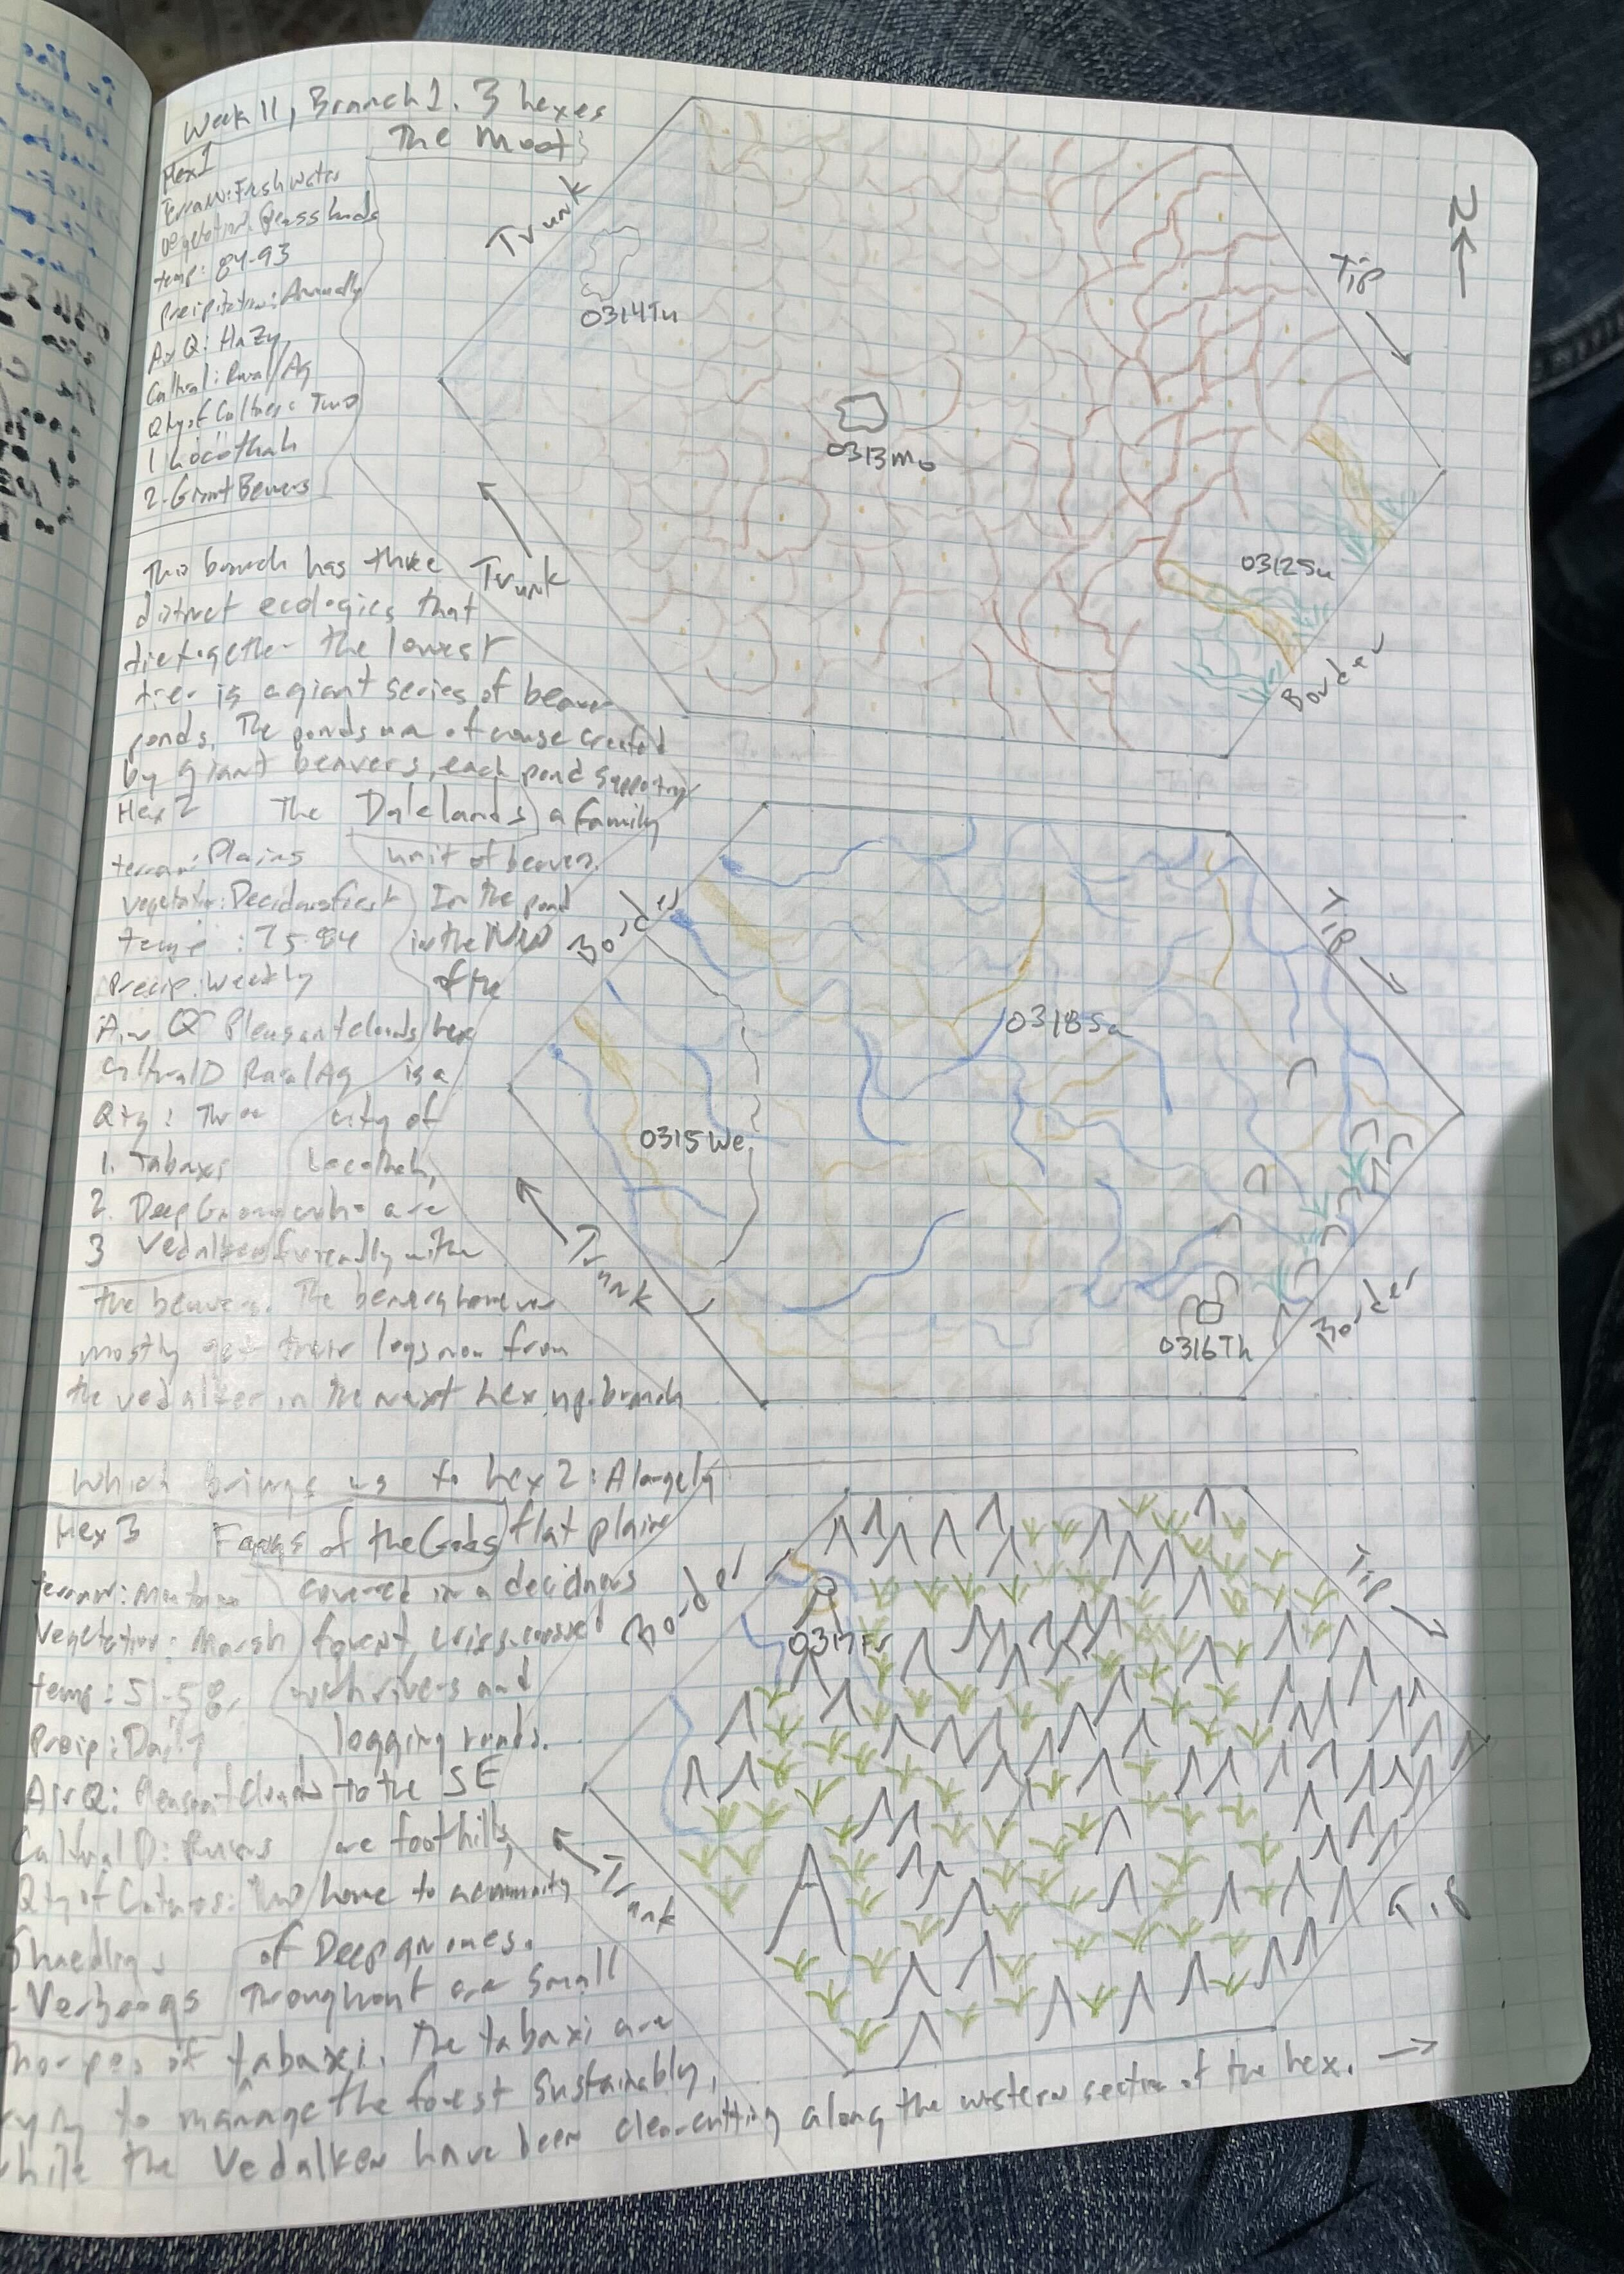 Week 11, Branch 1. 3 hexes
The Moot
Hex 1
Terrain: Freshwater
Vegetation: Grasslands
temp: 84-93
Precipitation: Annually
Air Q: Hazy
Cultural: Rural/Ag
Qty of Cultures: Two
1 Locothah
2- Giant Beavers
This branch has three
distinct ecologies that
tie together the lowest
tier is a giant series of beaver
ponds. The ponds are of course created
by giant beavers, each pond supporting
a family
unit of beavers.
In the pond
in the NW
of the
hex
is a
city of
Locothah,
who are
friendly with
the beavers. The beavers however
mostly get their logs now from
the vedalken in the next hex up-branch
Hex 2 The Dalelands
terrain: Plains
Vegetation: Deciduous forest
temp: 75-84
Precip: Weekly
Air Q Pleasant clouds
Cultural D Rural Ag
Qty: Three
1. Tabaxi
2. Deep Gnome
3 Vedalken
Which brings us to hex 2: A largely
flat plain
covered in a deciduous
forest, criss-crossed
with rivers and
logging roads.
to the SE
are foothills,
home to a community
of Deep gnomes.
Throughout are small
thorpes of tabaxi. The tabaxi are
trying to manage the forest sustainably,
while the Vedalken have been clear-cutting along the western section of the hex. →
Hex 3 Fangs of the Gods
terrain: Mountains
Vegetation: Marsh
temp: 51-58
Precip: Daily
Air Q: Pleasant Clouds
Cultural D: Ruins
Qty of Cultures: Two
- Verbeegs
N
Trunk
Tip
0314Tu
0313Mo
0312Su
Trunk
Border
Border
Tip
0318Sa
0315We
Trunk
0316Th
Border
Border
Tip
0317Fr
Trunk
Tip